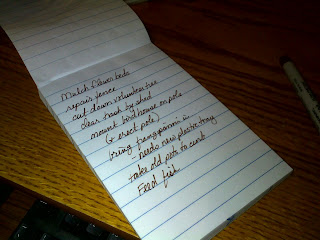 Mulch flower beds
repair fence
cut down volunteer tree
clear trash by shed
mount bird house on pole
(& erect pole)
bring frangipanni in
- needs new plastic tray
take old pots to cent
Feed fish